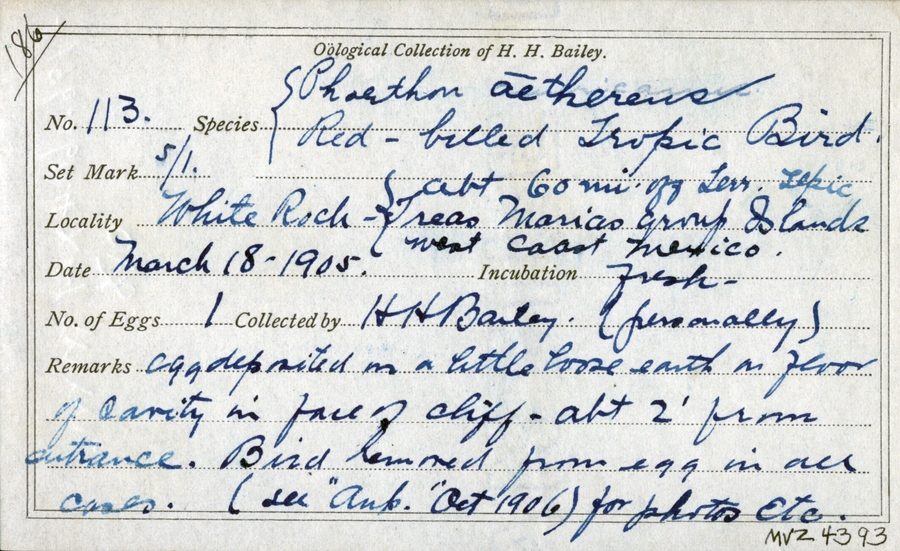 186
Oölogical Collection of H. H. Bailey.
No. 113. Species { Phaethon aethereus
Red-billed Tropic Bird.
Set Mark 5/1.
abt 60 mi. off Terr. Tepic
Locality White Rock - { Treas Marias group Islands
west coast Mexico.
Date March 18-1905. Incubation fresh-
No. of Eggs 1 Collected by HH Bailey. (personally)
Remarks egg deposited on a little loose earth on floor
of cavity in face of cliff - abt 2' from
entrance. Bird removed from egg in all
cases. (see "Auk." Oct 1906) for photos etc.
MVZ 4393